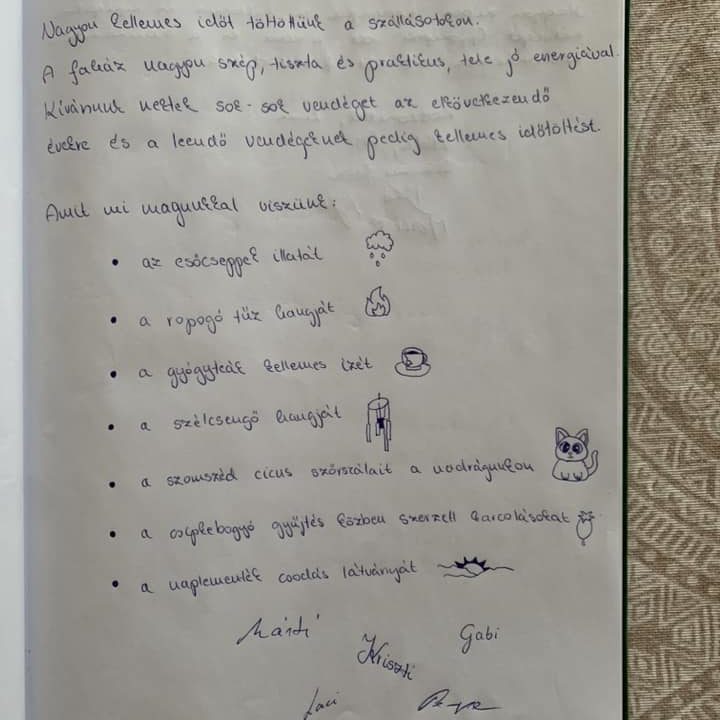 Nagyon kellemes időt töltöttünk a szállásotokon.
A faház nagyon szép, tiszta és praktikus, tele jó energiával.
Kívánunk nektek sok-sok vendéget az elkövetkezendő
évekre és a leendő vendégeknek pedig kellemes időtöltést.
Amit mi magunkkal viszünk:
• az esőcseppek illatát
• a ropogó tűz hangját
• a gyógyteák kellemes ízét
• a szélcsengő hangját
• a szomszéd cicus szőrszálait a nadrágunkon
• a csipkebogyó gyűjtés közben szerzett karcolásokat
• a naplementék csodás látványát
Márti
Kriszti
Gabi
Laci